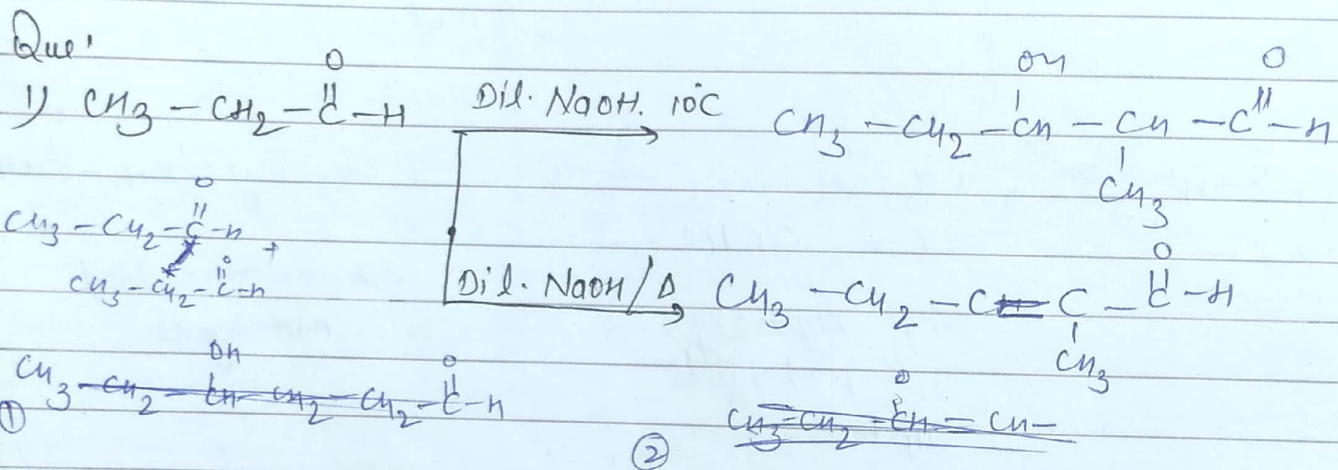 Que'
1) CH3 - CH2 - C(=O) - H Dil. NaOH. 10°C CH3 - CH2 - CH(OH) - CH(CH3) - C(=O) - H
CH3 - CH2 - C(=O) - H +
CH3 - CH2 - C(=O) - H
Dil. NaOH/Δ CH3 - CH2 - CH = C(CH3) - C(=O) - H
① CH3 - CH2 - CH(OH) - CH2 - CH2 - C(=O) - H
② CH3 - CH2 - CH(O) = CH -